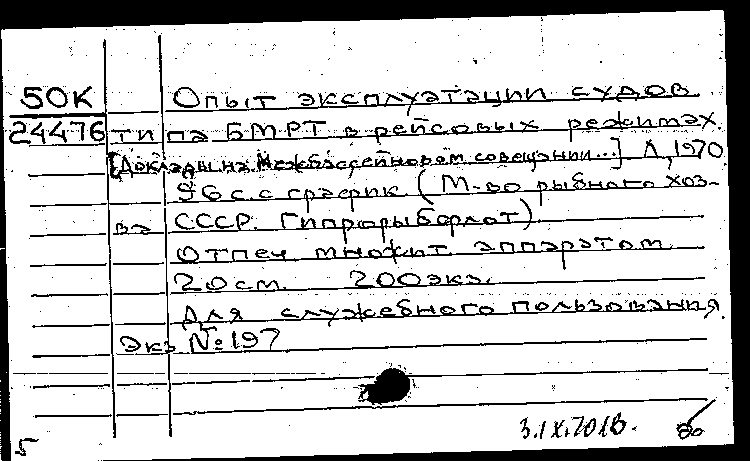 50К Опыт эксплуатации судов
24476 типа БМРТ в рейсовых режимах.
[Доклады на Межбассейновом совещании...] Л, 1970
96 с. с график (М-во рыбного хоз-
ва СССР. Гипрорыбфлот)
Отпеч множит аппаратом
20 см. 200 экз.
Для служебного пользования
Экз № 197
3.IX.701В.
5